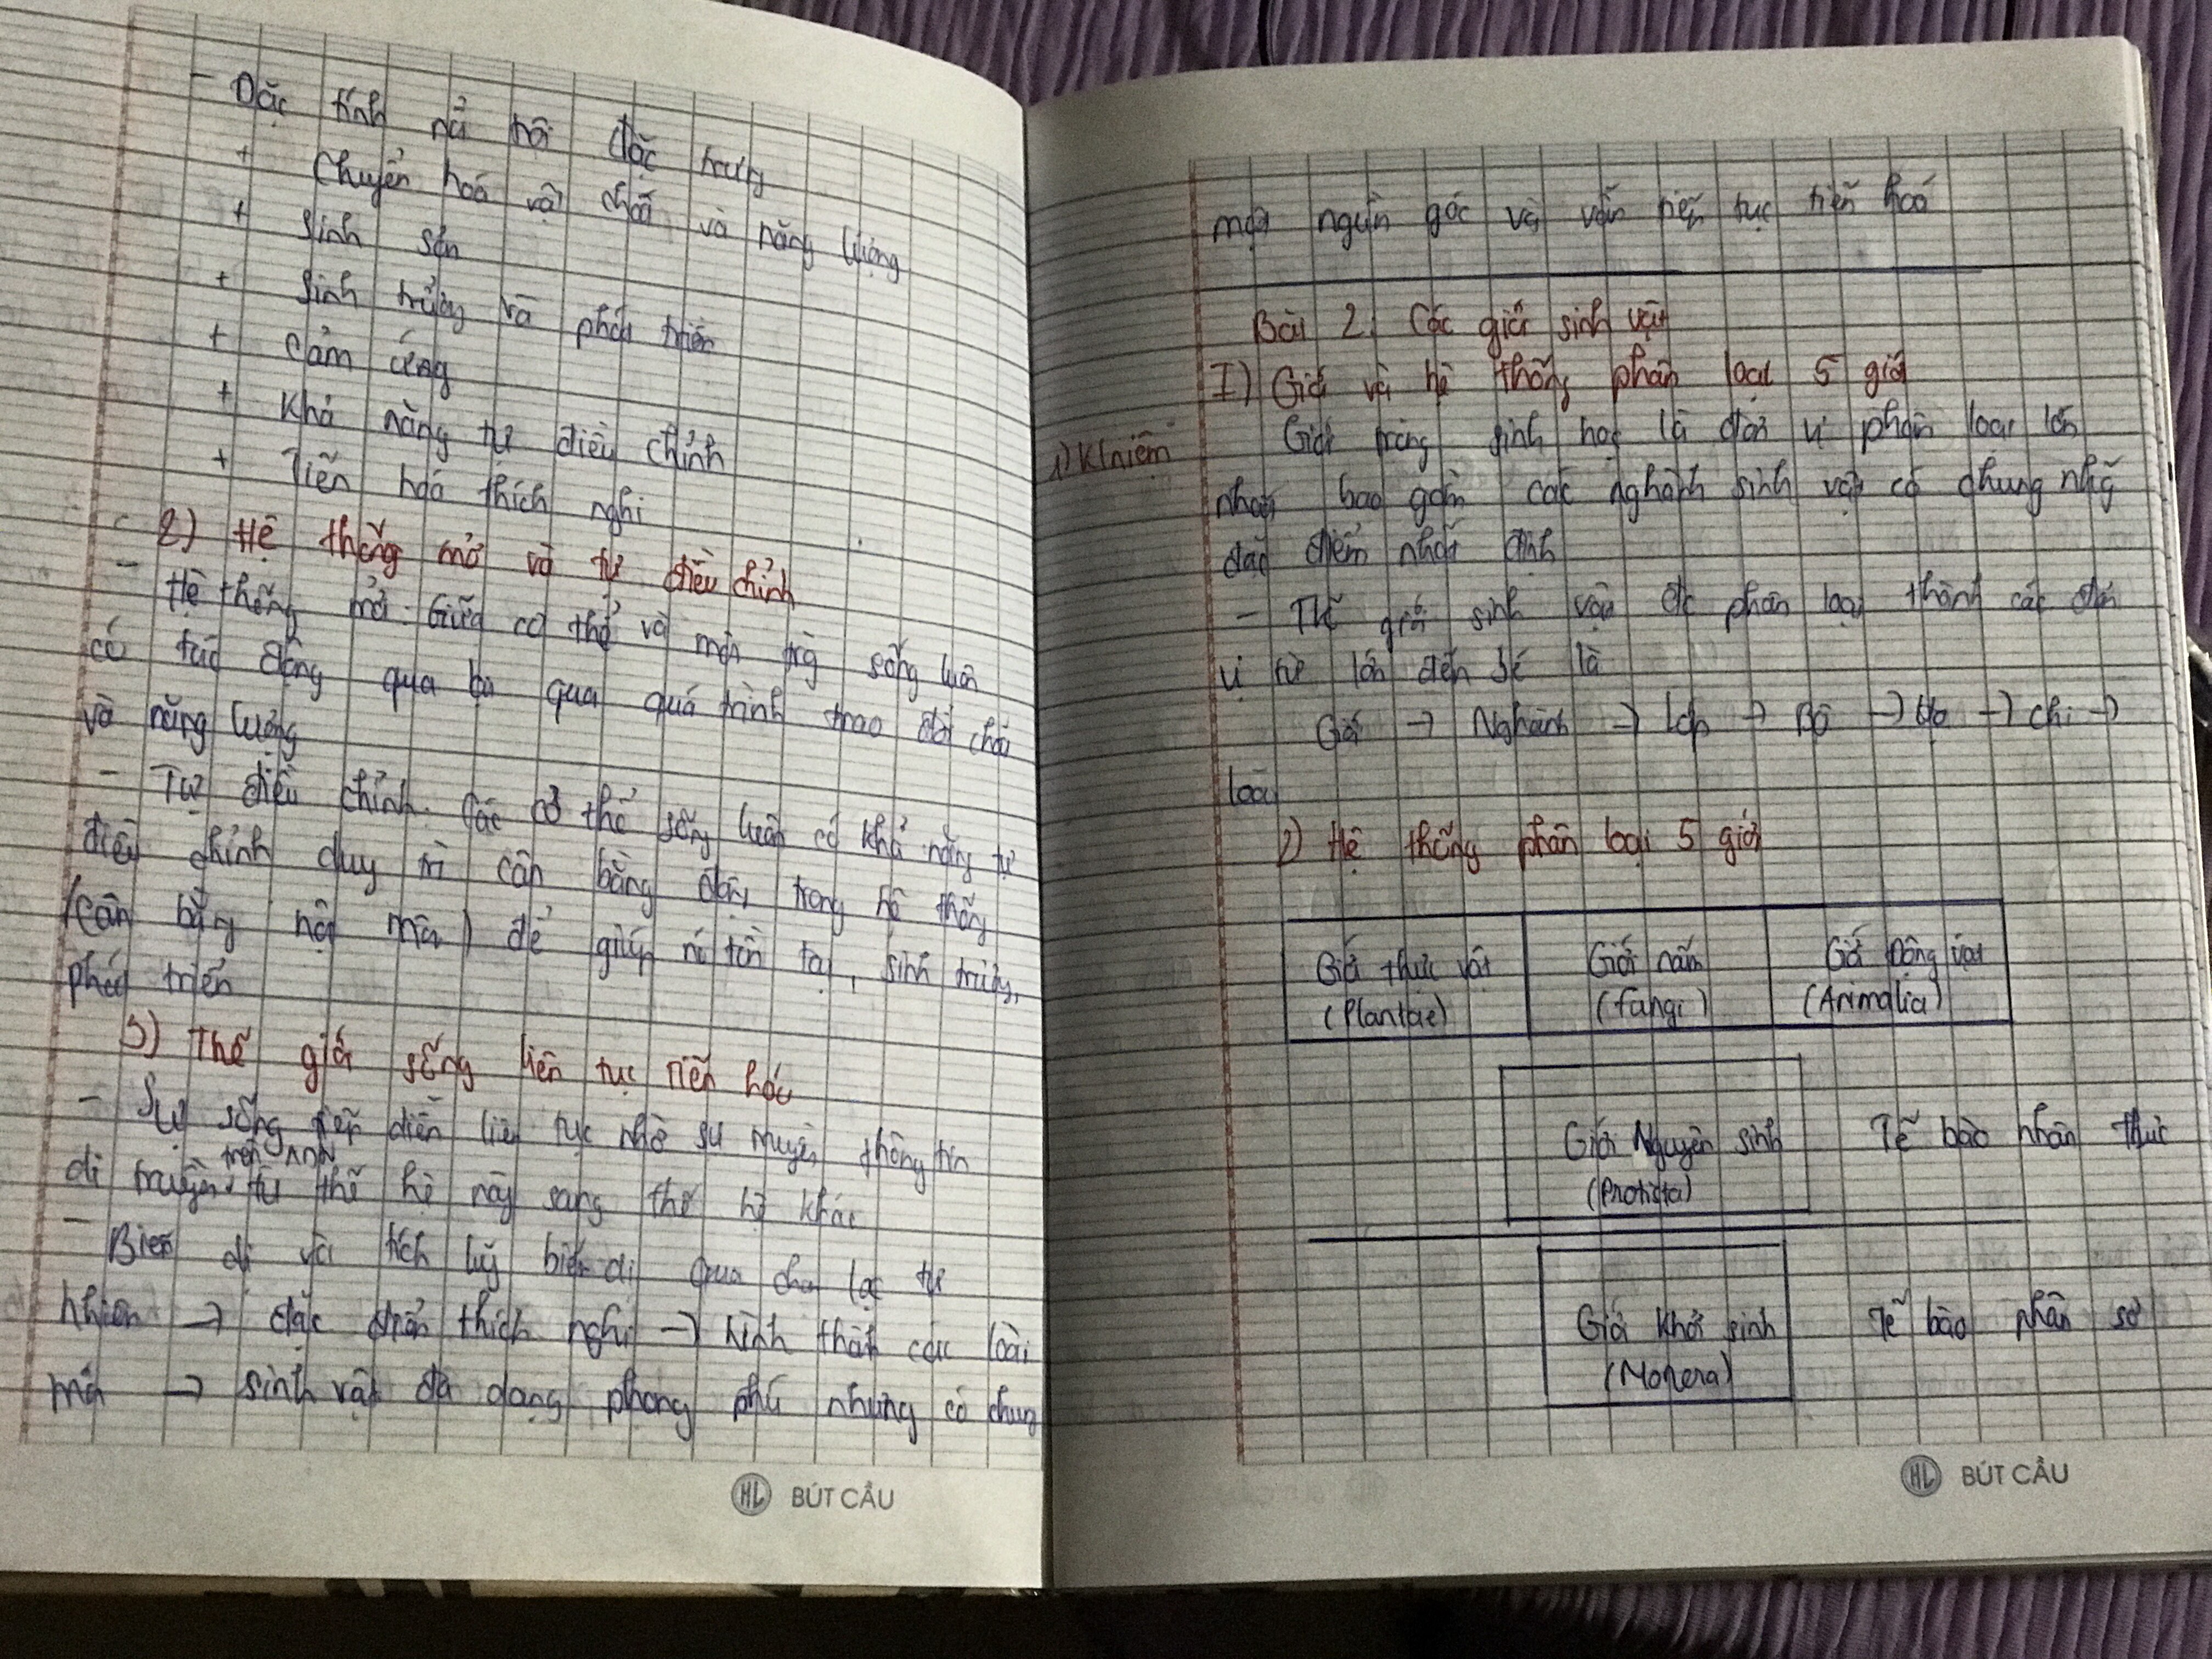 - Đặc tính nổi trội đặc trưng
+ Chuyển hoá vật chất và năng lượng
+ Sinh sản
+ Sinh trưởng và phát triển
+ Cảm ứng
+ Khả năng tự điều chỉnh
+ Tiến hoá thích nghi
2) Hệ thống mở và tự điều chỉnh
- Hệ thống mở: Giữa cơ thể và môi trg sống luôn
có tác động qua lại qua quá trình trao đổi chất
và năng lượng
- Tự điều chỉnh: Các cơ thể sống luôn có khả năng tự
điều chỉnh duy trì cân bằng động trong hệ thống
(cân bằng nội môi) để giúp nó tồn tại, sinh trưởng,
phát triển
3) Thế giới sống liên tục tiến hoá
- Sự sống tiếp diễn liên tục nhờ sự truyền thông tin
trên ADN
di truyền từ thế hệ này sang thế hệ khác
- Biến dị và tích luỹ biến dị qua chọn lọc tự
nhiên → đặc điểm thích nghi → hình thành các loài
mới → sinh vật đa dạng phong phú nhưng có chung
BÚT CẦU
một nguồn gốc và vẫn tiếp tục tiến hoá
Bài 2: Các giới sinh vật
I) Giới và hệ thống phân loại 5 giới
1) K/niệm
Giới trong sinh học là đơn vị phân loại lớn
nhất bao gồm các nghành sinh vật có chung nhg
đặc điểm nhất định
- Thế giới sinh vật đc phân loại thành các đơn
vị từ lớn đến bé là
Giới → Nghành → Lớp → Bộ → Họ → chi →
loài
2) Hệ thống phân loại 5 giới
Giới thực vật Giới nấm Giới Động vật
(Plantae) (fungi) (Animalia)
Giới Nguyên sinh Tế bào nhân thực
(Protista)
Giới khởi sinh Tế bào nhân sơ
(Monera)
HL BÚT CẦU